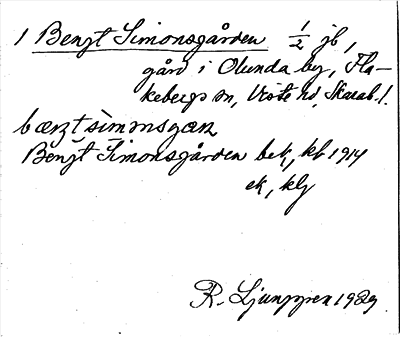 1 Bengt Simonsgården 1/2 jb,
gård i Olunda by, Fla-
kebergs sn, Viste hd, Skarab. l.
bæŋt sìmɔnsgæn
Bengt Simonsgården bek, kb 1914
ek, klj
R. Ljunggren 1929